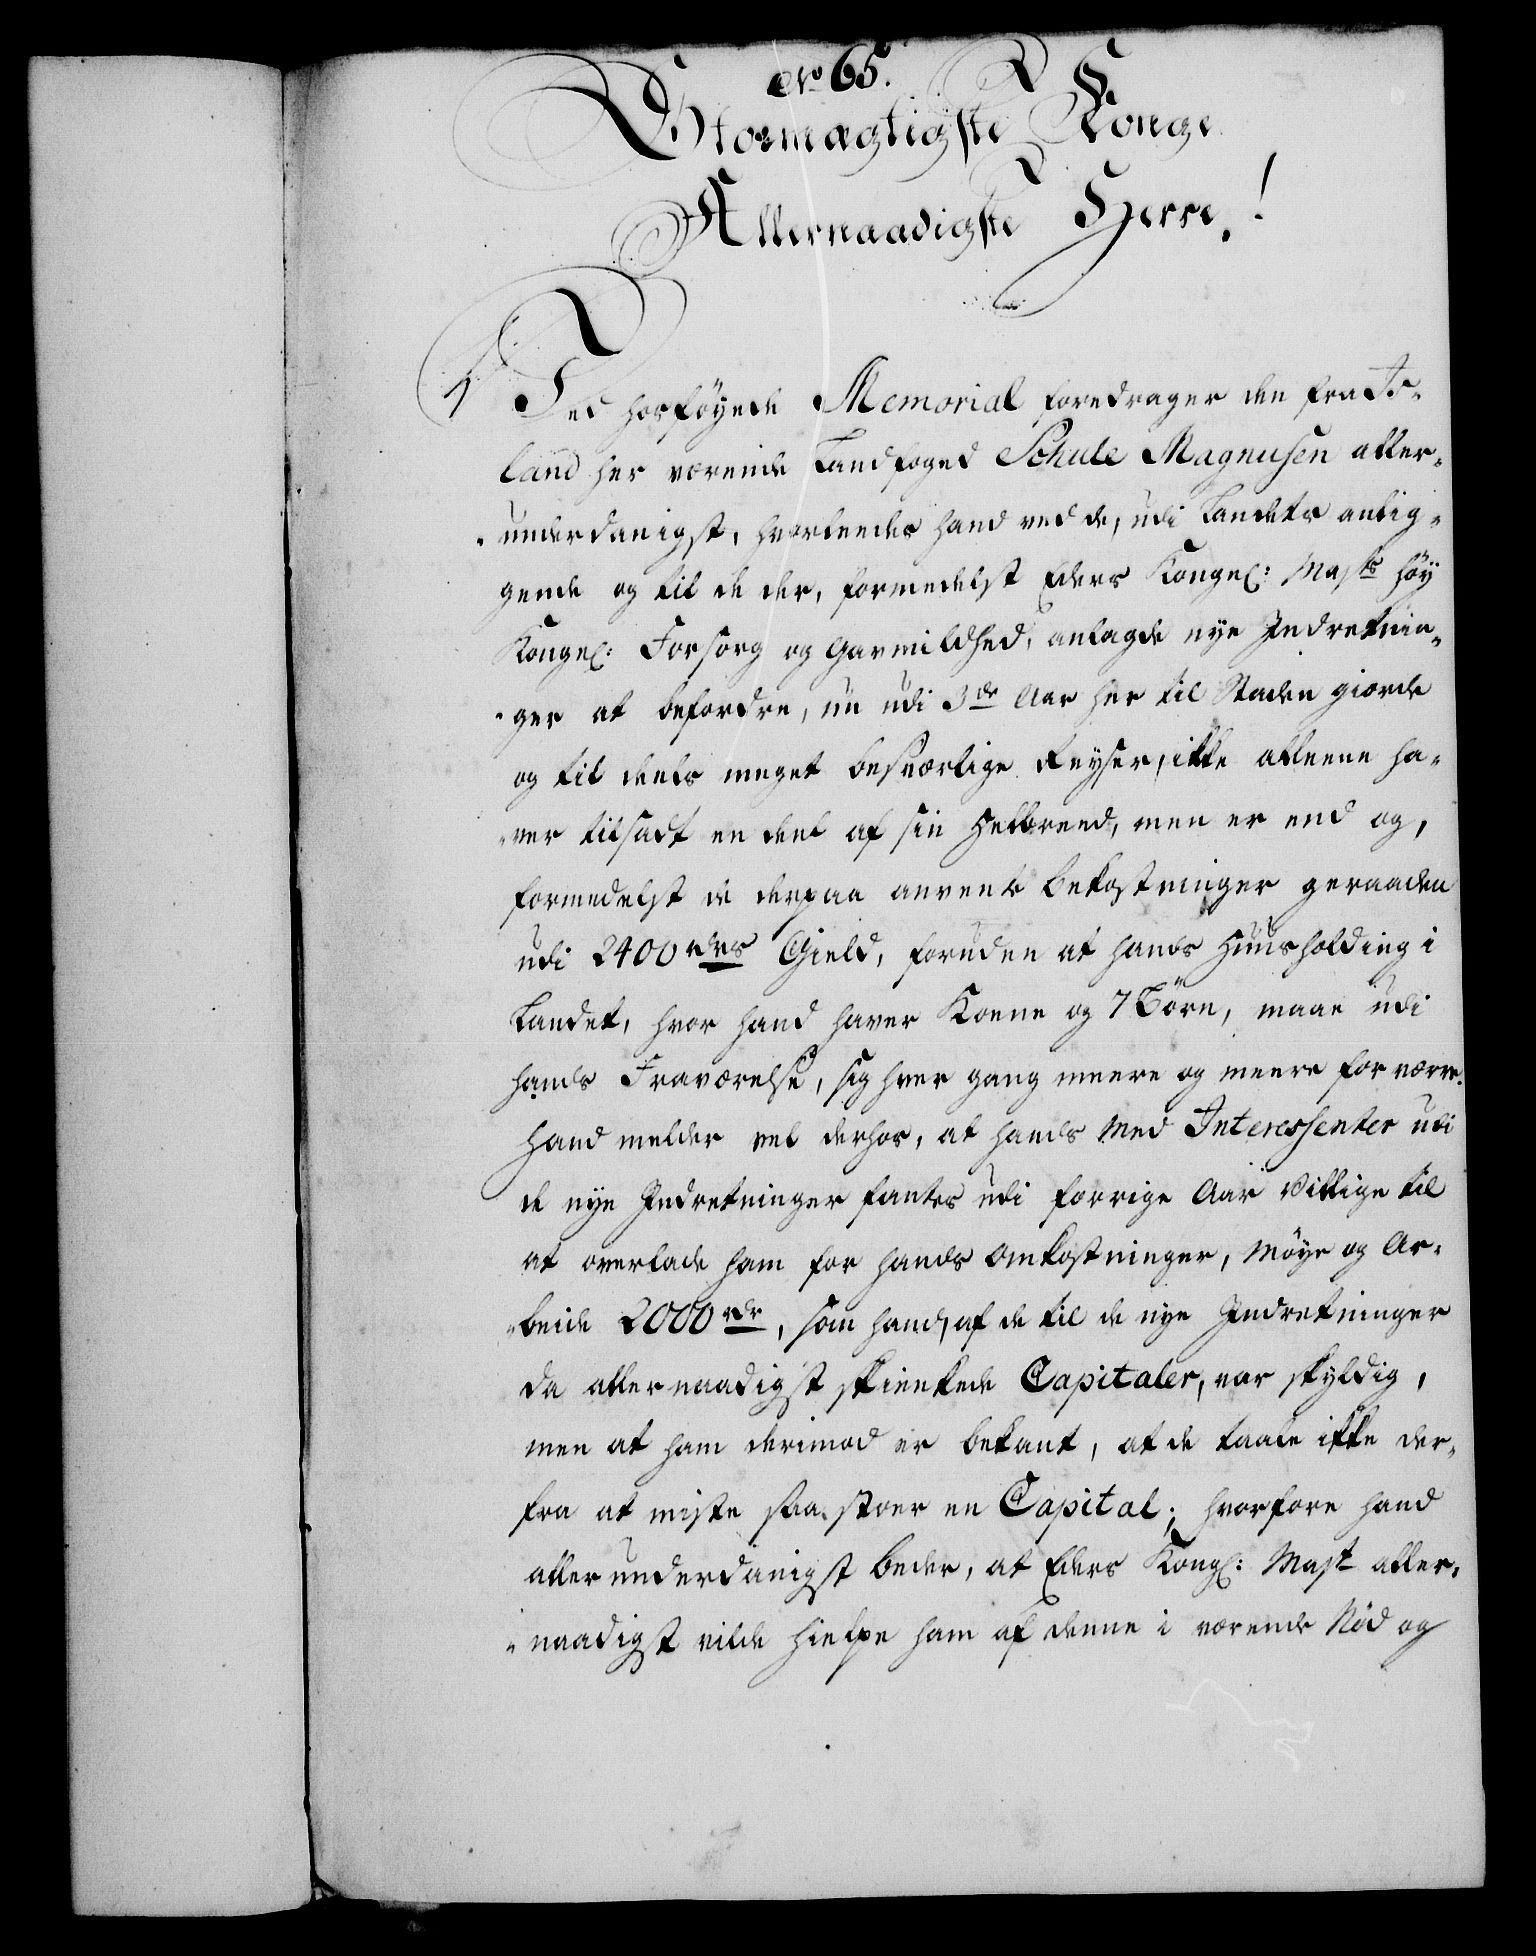 No 65.
Stormægtigste Konge
Allernaadigste Herre!
Ved hosføyede Memorial foredrager den fra Is-
land her værende Landfoged Schule Magnusen aller-
underdanigst, hvorleedes hand ved de, udi Landets anlig-
gende og til de der, formedelst Eders Kongel: Maj:ts høy
Kongel: Forsorg og Gavmildhed, anlagde nye Indretnin-
ger at befordre, nu udi 3de Aar her til Staden giorde
og til deels meget besværlige Reyser, ikke alleene ha-
ver tilsadt en deel af sin Helbreed, men er end og,
formedelst de derpaa anvente bekostninger geraaden
udi 2400 rdrs Gield, foruden at hands Huusholding i
Landet, hvor hand haver Kone og 7 Børn, maae udi
hands Fraværelse, sig hver gang meere og meere forværre.
Hand melder vel derhos, at hands Med Interessenter udi
de nye Indretninger fantes udi forrige Aar villige til
at overlade ham for hands Omkostninger, Møye og Ar-
beide 2000 rdr, som hand, af de til de nye Indretninger
da allernaadigst skienkede Capitaler, var skyldig,
men at ham derimod er bekant, at de taale ikke der-
fra at miste saa stoer en Capital; hvorfore hand
allerunderdanigst beder, at Eders Kongl: Majt aller-
naadigst vilde hielpe ham af denne i værende Nød og